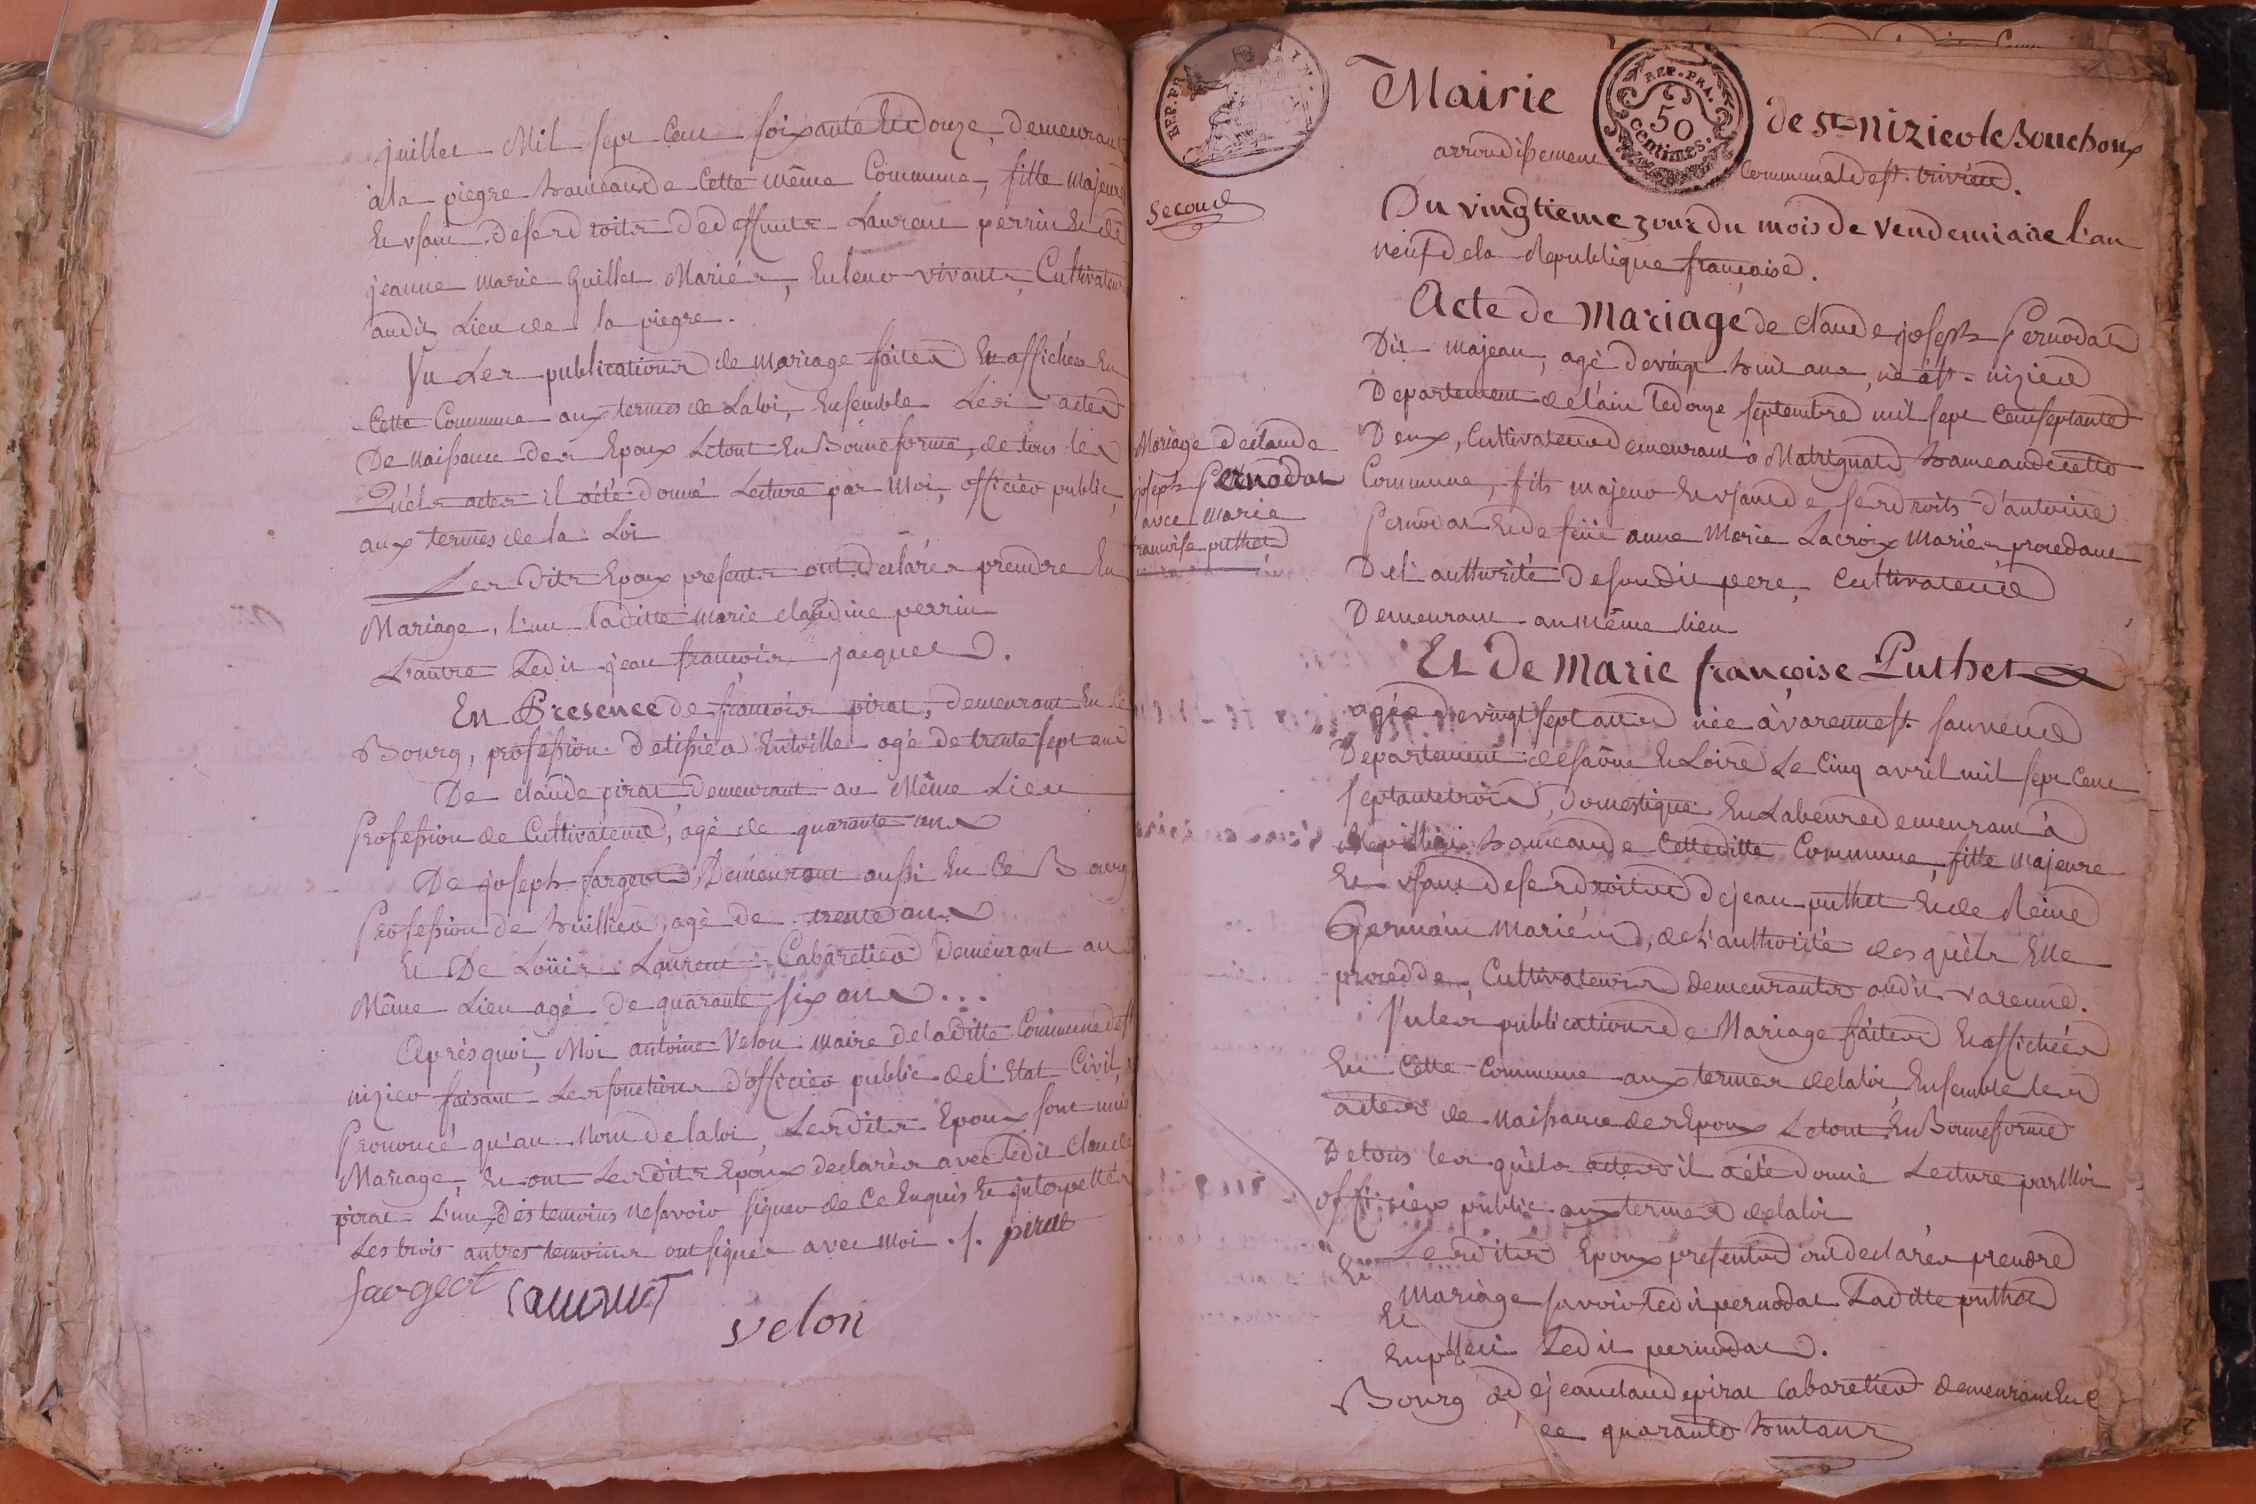 juillet Mil sept Cent soixante Et Douze, Demeurant
à la piegre hameau de Cette même Commune, fille majeure
Et usant de ses droits de deffunts Laurent perrin Et de
jeanne marie Guillet Mariés, En leur vivant, Cultivateurs
audit Lieu de la piegre.
Vu Les publications de mariage faites Et affichées En
Cette Commune aux termes de La loi, Ensemble Les actes
De naissance des Epoux Le tout En Bonne forme, de tous les
Quels actes il a été donné Lecture par Moi, officier public,
aux termes de la Loi
Les dits Epoux presents ont declarés prendre En
Mariage, l'un laditte marie claudine perrin
L'autre Ledit jean françois jacquet.
En Presence de françois pirat, demeurant En Ce
Bourg, profession de tissier En toille agé de trente sept ans
De claude pirat demeurant au Même Lieu
Profession de Cultivateur, agé de quarante ans
De joseph fargeot, Demeurant aussi En Ce Bourg
Profession de huillier, agé de trente ans
Et De Loüis Laurent Cabaretier Demeurant au
Même Lieu agé De quarante six ans ...
Après quoi, Moi antoine Velon maire de laditte Commune de st
nizier faisant Les fonctions d'officier public de l'Etat Civil,
Prononcé qu'au Nom de la loi, Lesdits Epoux sont unis
Mariage, Et ont Lesdits Epoux declarés avec ledit Claude
pirat L'un des temoins ne savoir signer de Ce Enquis Et interpellés
Les trois autres temoins ont signés avec moi. f. pirat
fargeot Laurent
Velon
REP. FRA.
50
centimes.
REP. FR
Mairie de st nizier le Bouchoux
arrondissement Communal de st. trivier.
second
Du vingtieme jour du mois de Vendemiaire l'an
neuf de la Republique française.
Acte de Mariage de claude joseph Pernodat
Dit majeau, agé de vingt huit ans, né à st. nizier
Departement de l'ain le douze septembre mil sept Cent septante
Deux, Cultivateur Demeurant à Matrignat hameau de cette
Commune, fils majeur Et usant de ses droits d'antoine
Pernodat Et de feüe anne Marie Lacroix Mariés procedant
De l'authorité de son dit pere, Cultivateur
Demeurant au même lieu
Mariage de claude
joseph Pernodat
avec Marie
francoise puthet
Et De Marie françoise Puthet
agée de vingt sept ans née à varenne st. sauveur
Departement de saône Et Loire Le Cinq avril mil sept Cent
septante trois, domestique En Labeur demeurant à
hameau de Cetteditte Commune, fille majeure
Et usant de ses droits de jean puthet Et de Reine
Germain Mariés, de l'authorité desquels Elle
procedde, Cultivateurs demeurants audit varenne.
Vu les publications de Mariage faites Et affichées
En Cette Commune aux termes de la loi, Ensemble les
actes de Naissance des Epoux Le tout En Bonne forme
De tous les quels actes il a été donné Lecture par Moi
officier public aux termes de la loi
Lesdits Epoux presents ont declarés prendre
En Mariage savoir ledit pernodat Laditte puthet
Et
ledit pernodat.
Bourg de jean claude pirat Cabaretier demeurant En C
de quarante huit ans